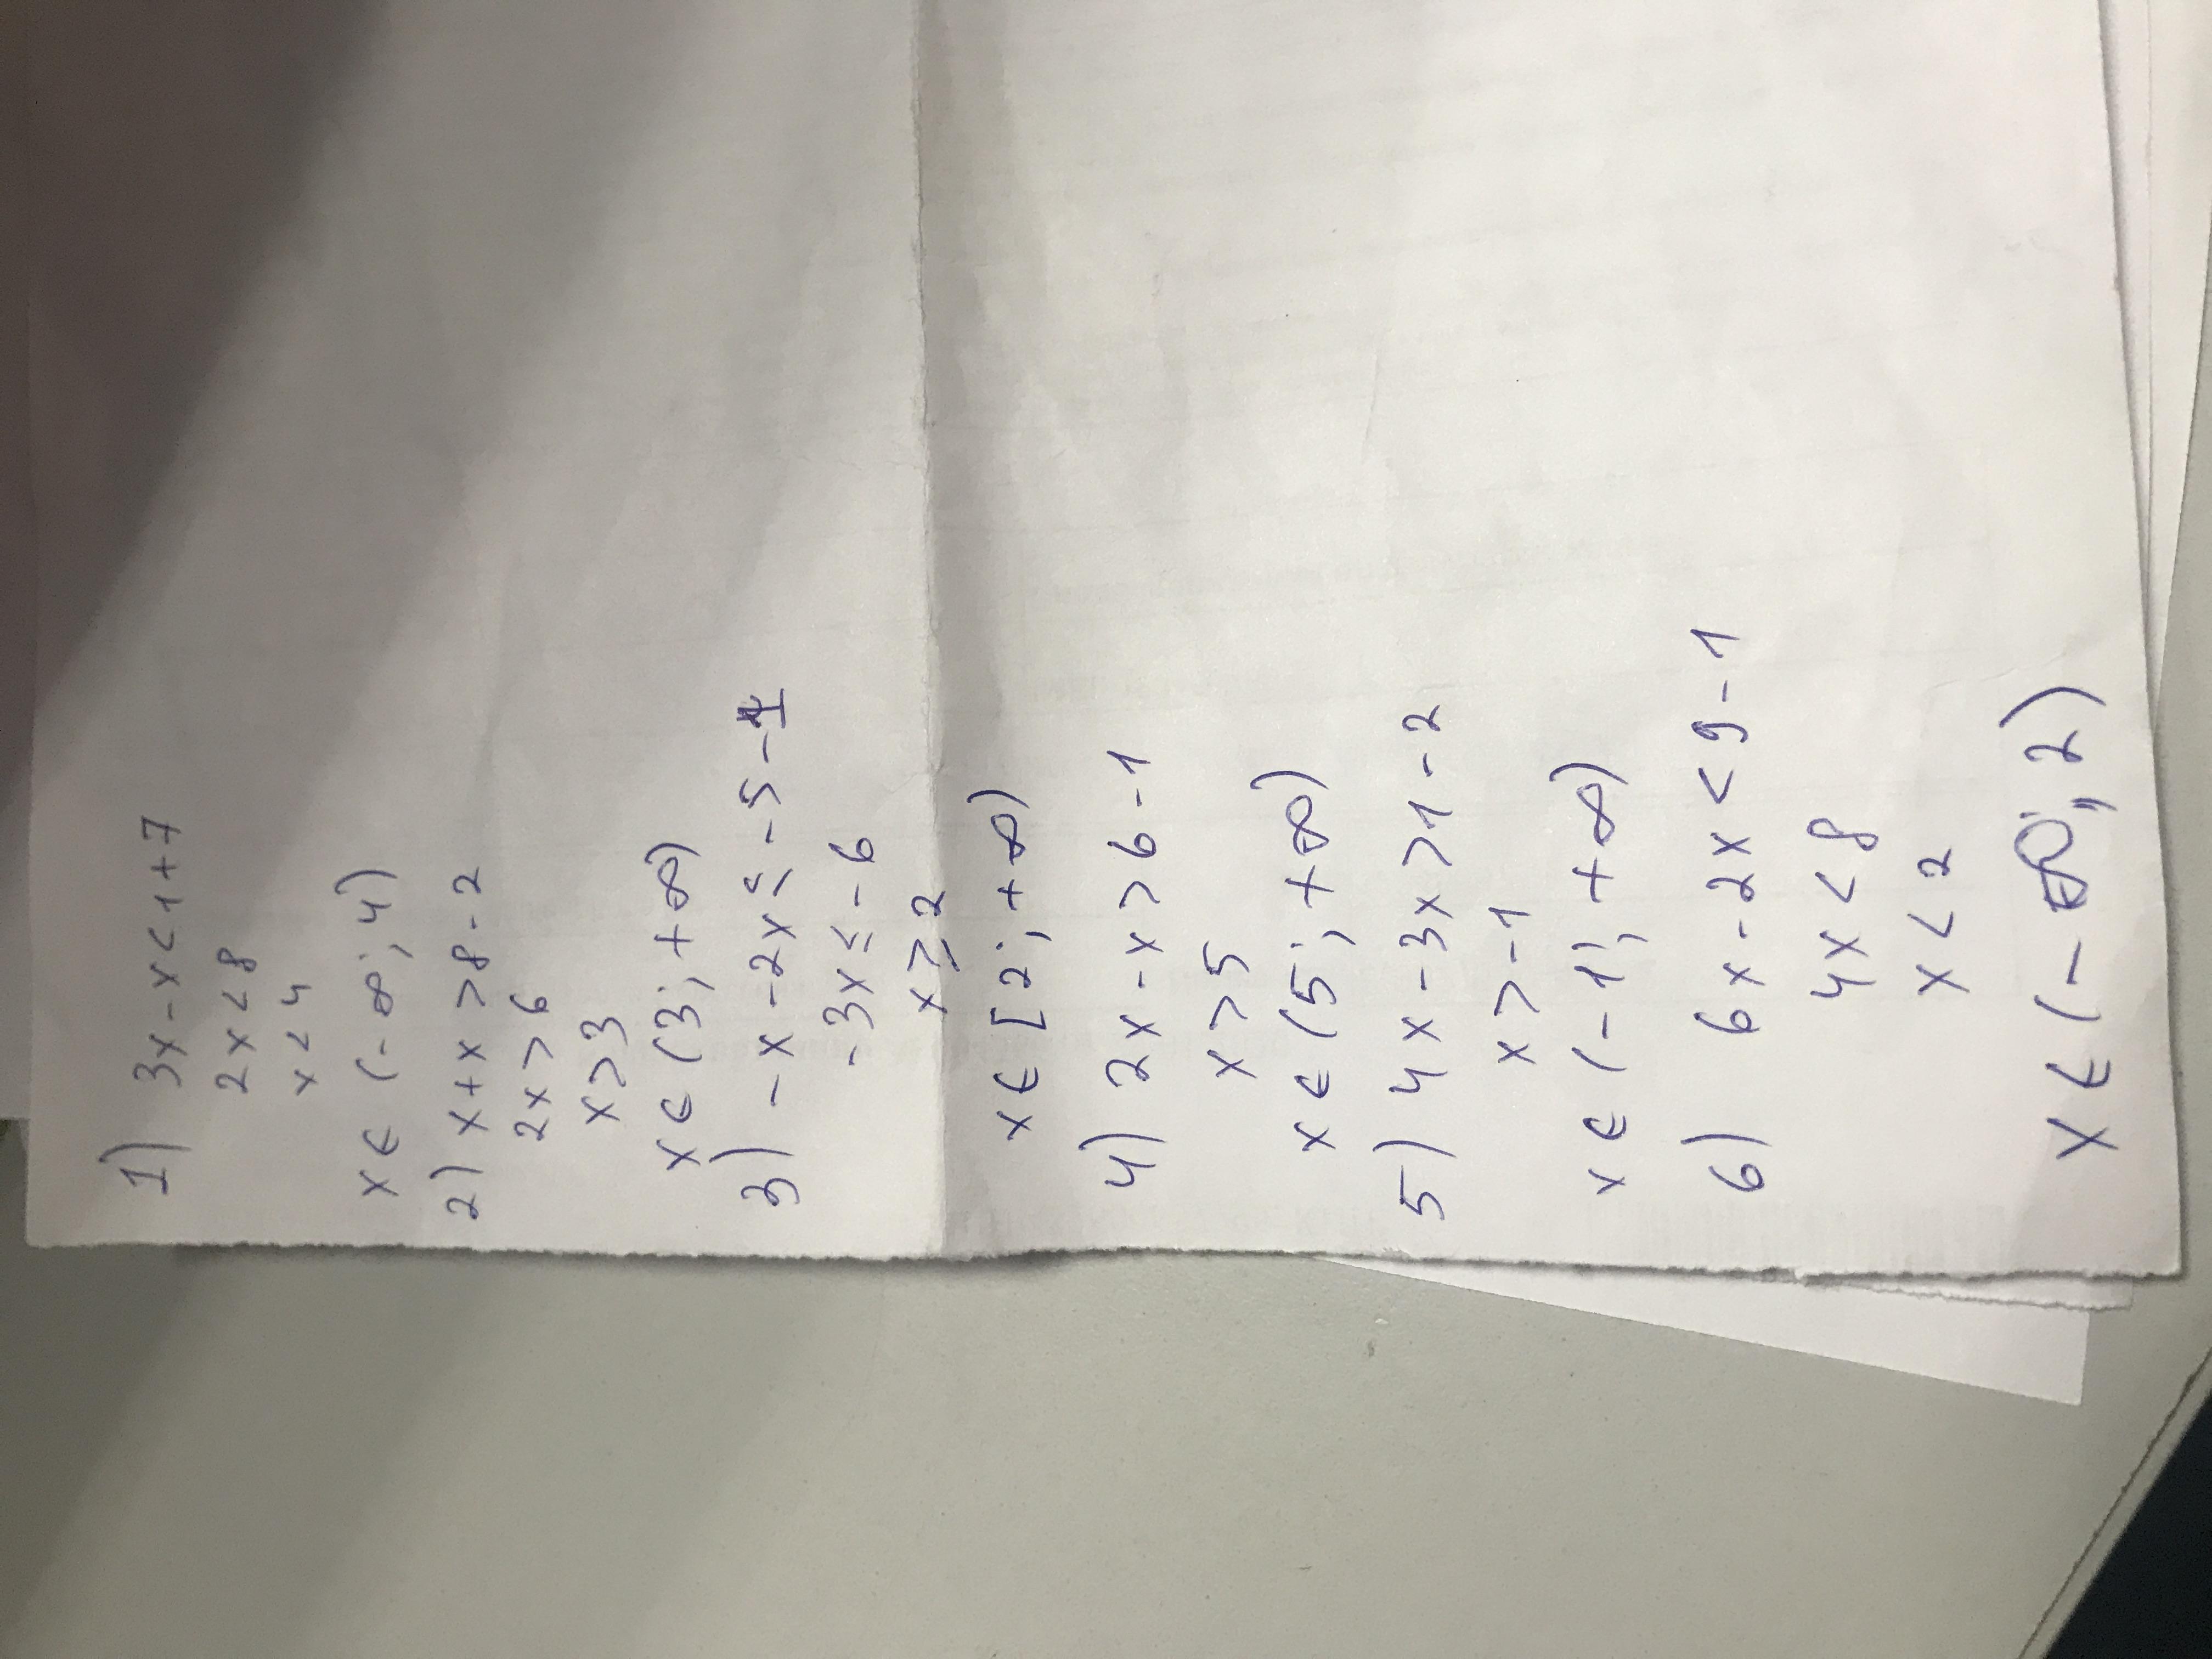 1) 3x-x<1+7
2x<8
x<4
x∈(-∞;4)
2) x+x>8-2
2x>6
x>3
x∈(3;+∞)
3) -x-2x≤-5-1
-3x≤-6
x≥2
x∈[2;+∞)
4) 2x-x>6-1
x>5
x∈(5;+∞)
5) 4x-3x>1-2
x>-1
x∈(-1;+∞)
6) 6x-2x<9-1
4x<8
x<2
x∈(-∞;2)